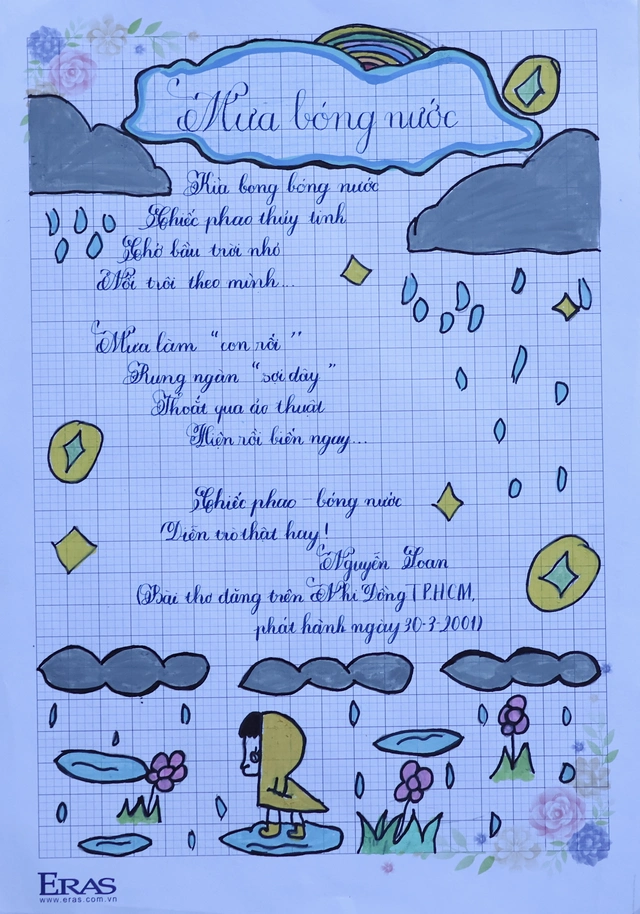 Mưa bóng nước
Kìa bong bóng nước
Chiếc phao thủy tinh
Chở bầu trời nhỏ
Nổi trôi theo mình...
Mưa làm "con rối"
Rung ngàn "sợi dây"
Thoắt qua ảo thuật
Hiện rồi biến ngay...
Chiếc phao - bóng nước
Diễn trò thật hay!
Nguyễn Loan
(Bài thơ đăng trên Nhi Đồng TP.HCM,
phát hành ngày 30-3-2001)
ERAS
www.eras.com.vn